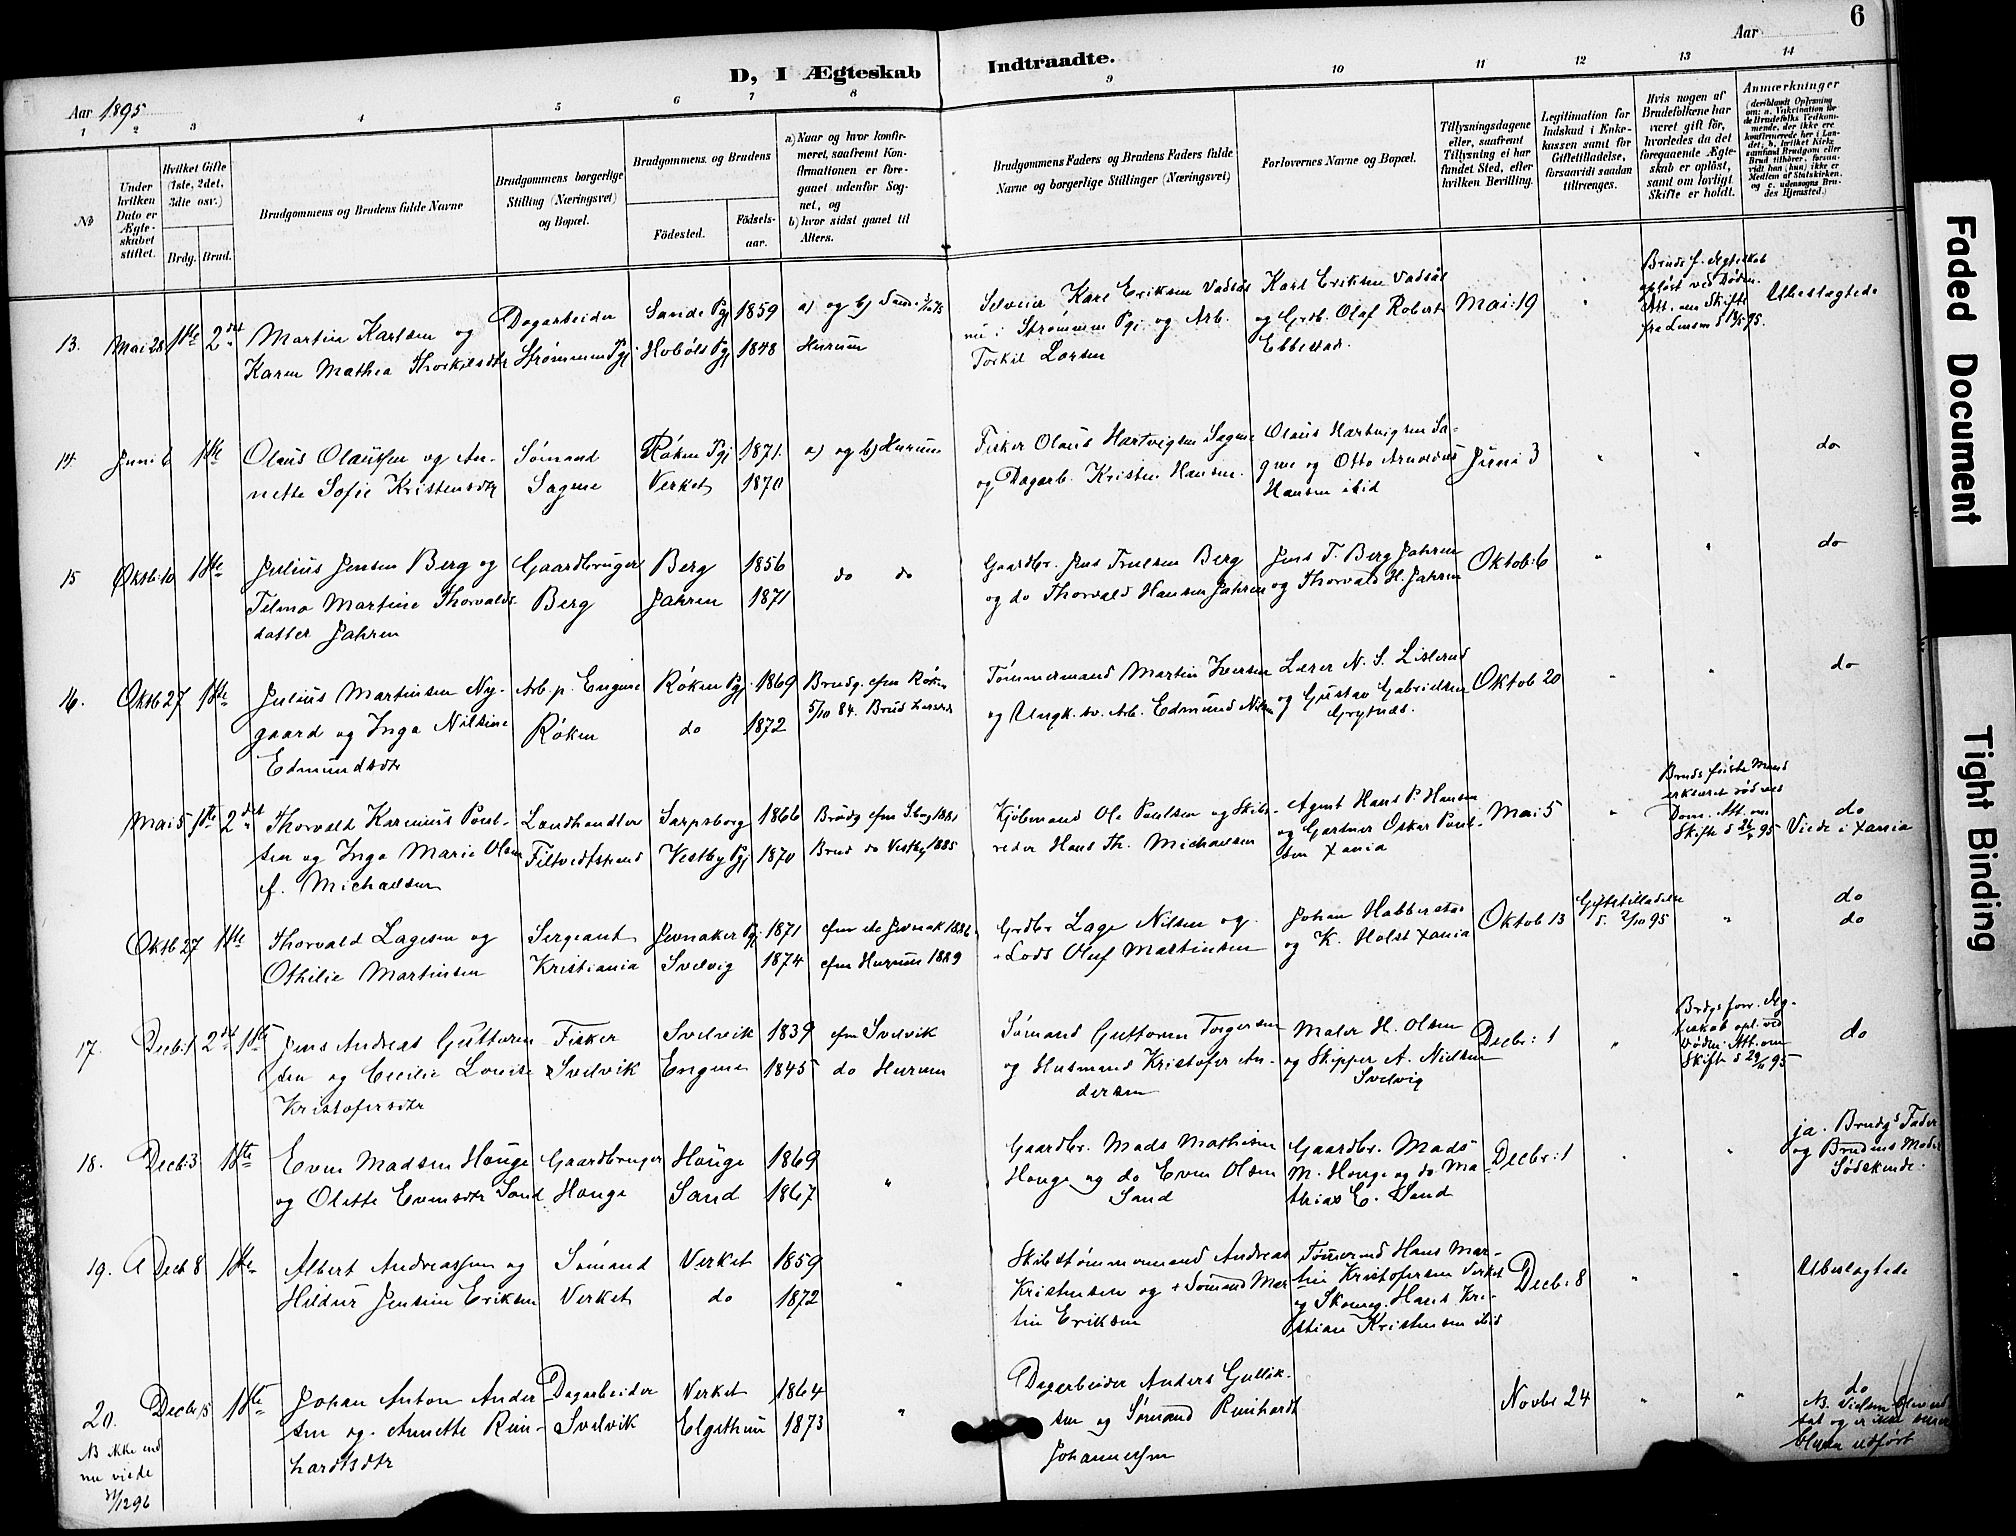 6
Aar
D, I Ægteskab Indtraadte.
Aar 1895
1 2 3 4 5 6 7 8 9 10 11 12 13 14
No
Under hvilken Dato er Ægteskabet stiftet.
Hvilket Gifte (1ste, 2det, 3die osv.)
Brdg. Brud.
Brudgommens og Brudens fulde Navne
Brudgommens borgerlige Stilling (Næringsvei) og Bopæl.
Brudgommens og Brudens
Födested. Födselsaar.
a) Naar og hvor konfirmeret, saafremt Konfirmationen er foregaaet udenfor Sognet, og
b) hvor sidst gaaet til Alters.
Brudgommens Faders og Brudens Faders fulde Navne og borgerlige Stillinger (Næringsvei)
Forlovernes Navne og Bopæl.
Tillysningsdagene eller, saafremt Tillysning ei har fundet Sted, efter hvilken Bevilling.
Legitimation for Indskud i Enkekassen samt for Giftetilladelse, forsaavidt saadan tiltrænges.
Hvis nogen af Brudefolkene har været gift før, hvorledes da det foregaaende Ægteskab er oplöst, samt om lovligt Skifte er holdt.
Anmærkninger
13. Mai 28 1ste 2det
Martin Karlsen og
Karen Mathea Thorkilsdtr
Dagarbeider
Strømmen Pgj
Sande Pgj 1859
Hobøls Pgj 1848
a) og b) Sande
Hurum
Selveier Karl Eriksen Vadsøs
nu i Strømmens Pgj. og Arb.
Torkil Larsen
Karl Eriksen Vadsøs
og Grdb. Olaf Robert
Ebbestad.
Mai: 19
Bruds f. Ægteskab
opløst ved Døden.
Att. om Skifte
Ubeslægtede
14. Juni 6 1ste
Olaus Olaussen og An-
nette Sofie Kristensdtr
Sømand
Sagene
Røken Pgj 1871
Verket 1870
a) og b) Hurum
Fisker Olaus Hartvigsen Sagene
og Dagarb. Kristen Hansen.
Olaus Hartvigsen Sa-
gene og Otto Arnoldus
Hansen ibid
Juni 3
do
15 Oktb: 10 1ste
Julius Jensen Berg og
Tilma Martine Thorvalds
datter Jahren
Gaardbruger
Berg
Berg 1856
Jahren 1871
do do
Gaardbr. Jens Truelsen Berg
og do Thorvald Hansen Jahren
Jens T. Berg Jahren
og Thorvald H. Jahren
Oktob: 6
do
16. Oktb 27 1ste
Julius Martinsen Ny-
gaard og Inga Nilsine
Edmundsdtr
Arb. p. Engene
Røken
Røken Pgj. 1869
do 1872
Brudg. cfm Røken
5/10 84. Brud
Tømmermand Martin Iversen
og Ungk. Arb. Edmund Nilsen
Lærer N. S. Lislerud
og Gustav Gabrielsen
Grytnæs.
Oktob 20
do
Mai 5 1ste 2det
Thorvald Karenius Poul-
sen og Inga Marie Olsen
f. Michaelsen
Landhandler
Filtvedtstrand
Sarpsborg 1866
Vestby Pgj 1870
Brudg cfm Sbrg 1881
Brud do Vestby 1885
Kjøbmand Ole Paulsen og Skibs-
reder Hans Th. Michaelsen
Agent Hans P. Hansen
og Gartner Oskar Poul-
sen Xania
Mai 5
Bruds første Mand
erklæret død ved
Dom. Att. om
do
Viede i Xania
Oktb 27 1ste
Thorvald Lagesen og
Othilie Martinsen
Sergeant
Kristiania
Jevnaker Pgj 1871
Svelvig 1874
cfm Jevnak 1886
cfm Hurum 1889
Grdbr Lage Nilsen og
Lods Oluf Martinsen
Johan Habberstad
og K. Holst Xania
Oktob 13
Giftetilladelse
d. 2/10 95
do
do
17. Decb: 1 2det 1ste
Jens Andreas Guttorm
sen og Cecilie Lovise
Kristofersdtr
Fisker
Svelvik
Svelvik 1839
Engene 1845
cfm Svelvik
do Hurum
Sømand Guttorm Torgersen
og Husmand Kristofer An-
dersen
Maler H. Olsen
og Skipper A. Nielsen
Svelvig
Decbr: 1
Brdgs forr. Æg-
teskab opl. ved
Døden. Att. om
Skifte d 29/11 95
do
18. Decb: 3 1ste
Even Madsen Houge
og Olette Evensdtr Sand
Gaardbruger
Houge
Houge 1869
Sand 1867
Gaardbr. Mads Mathisen
Houge og do Even Olsen
Sand
Gaardbr. Mads
M. Houge og do Ma-
thias E. Sand
Decbr: 1
ja. Brudgs Fader
og Brudens Moder
Sødskende.
19. Decb 8 1ste
Albert Andreassen og
Hildur Jensine Eriksen
Sømand
Verket
Verket 1859
do 1872
Skibstømmermand Andreas
Kristensen og Sømand Mar
tin Eriksen
Tømmermd Hans Mar-
tin Kristofersen Verket
og Skomag. Hans Kri-
stian Kristensen ibid
Decb: 8
Ubeslægtede
20. Decbr 15 1ste
Johan Anton Ander
sen og Annette Rein-
hardtsdtr
Dagarbeider
Svelvik
Verket 1864
Elgethun 1873
Dagarbeider Anders Gullik-
sen og Sømand Reinhardt
Johannessen
Novbr 24
do
NB. Vielsen blev ud
sat og er ikke senere
bleven udført
NB ikke end
nu viede
31/12 96
Faded Document
Tight Binding